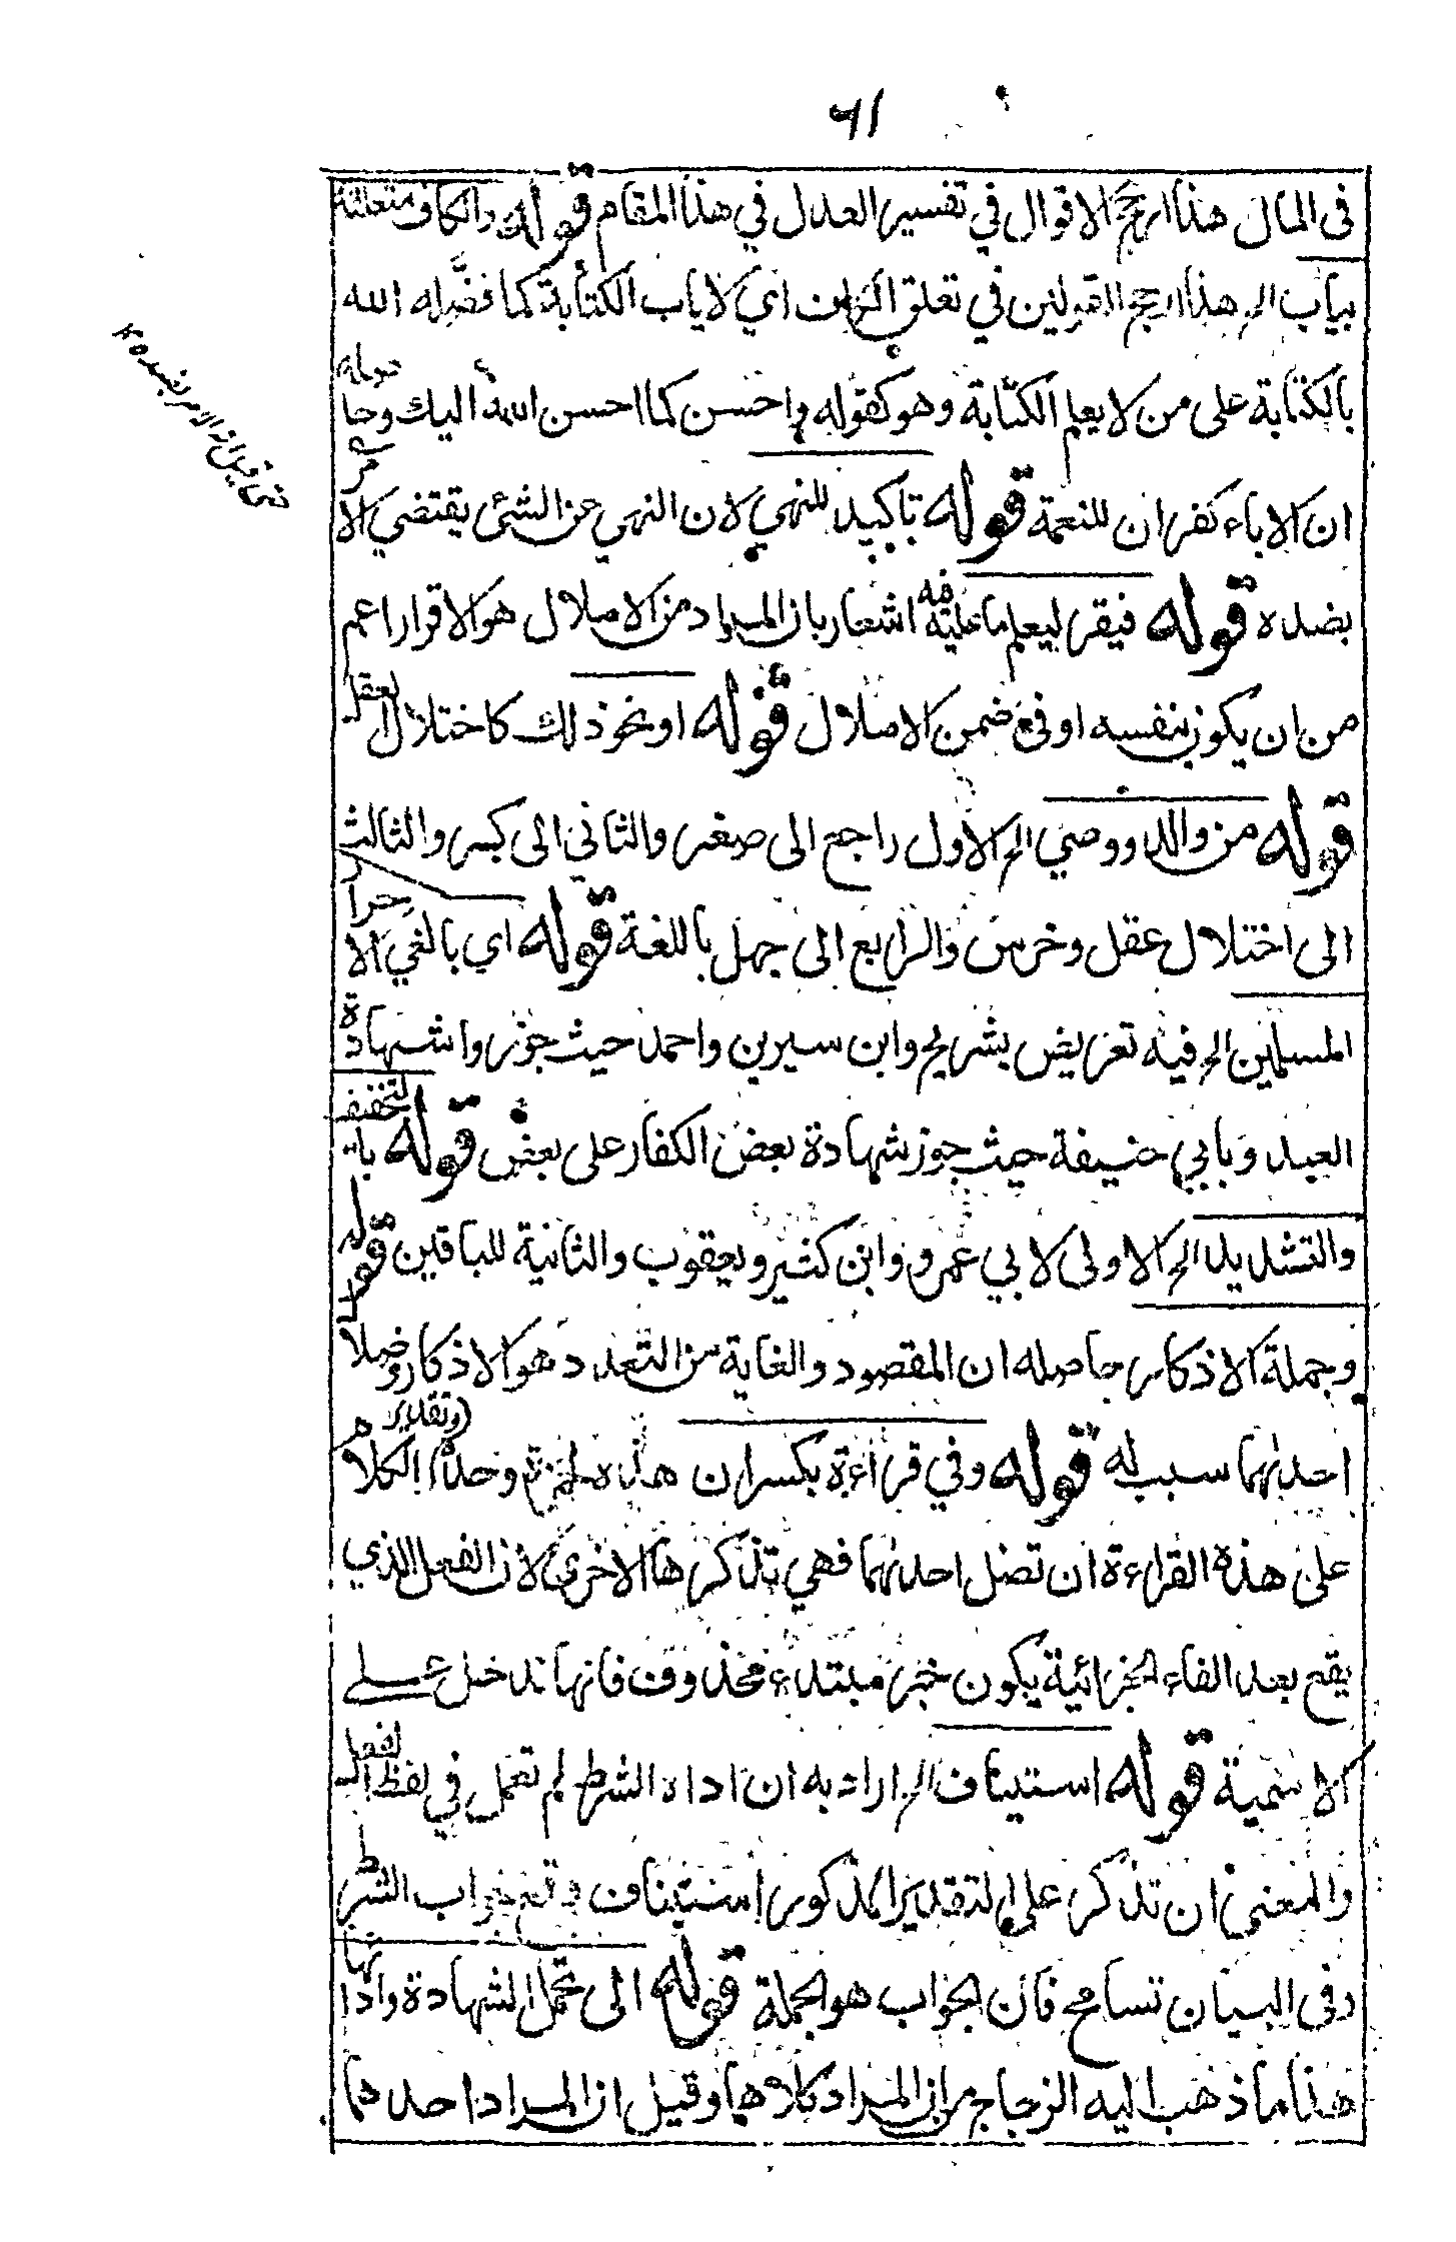 ٦١
فى المال هذا ارجح الاقوال في تفسير العدل في هذا المقام قوله والكاف متعلقة
بياب الخ هذا ارجح القولين في تعلق الكاف اي لا ياب الكتابة كما فضله الله
بالكتابة على من لا يعلم الكتابة وهو كقوله واحسن كما احسن الله اليك وحاصله
ان الاباء كفران للنعمة قوله تاكيد للنهي لان النهي عن الشئ يقتضي الامر
بضده قوله فيقر ليعلم ما عليه فيه اشعار بان المراد من الاملال هو الاقرار اعم
من ان يكون بنفسه او في ضمن الاملال قوله او نحو ذلك كاختلال العقل
قوله من والد ووصي الخ الاول راجع الى صغر والثاني الى كبر والثالث
الى اختلال عقل وخرس والرابع الى جهل باللغة قوله اي بالغي الاحرار
المسلمين الخ فيه تعريض بشريح وابن سيرين واحمد حيث جوزوا شهادة
العبد وبابي حنيفة حيث جوز شهادة بعض الكفار على بعض قوله بالتخفيف
والتشديد الخ الاولى لابي عمرو وابن كثير ويعقوب والثانية للباقين قوله
وجملة الاذكار حاصله ان المقصود والغاية من التعدد هو الاذكار وضلال
احدىهما سبب له قوله وفي قراءة بكسر ان هذه لحمزة وحده (وتقدير الكلام
على هذه القراءة ان تضل احدىهما فهي تذكرها الاخرى لان الفعل الذي
يقع بعد الفاء الجزائية يكون خبر مبتدء محذوف فانها تدخل على
الاسمية قوله استيناف الخ اراد به ان اداه الشرط لم تعمل في لفظ الفعل
والمعنى ان تذكر على التقدير المذكور استيناف وقع جواب الشرط
وفى البيان تسامح فان الجواب هو الجملة قوله الى تحمل الشهادة وادائها
هذا ما ذهب اليه الزجاج من ان المراد كلاهما وقيل ان المراد احدهما